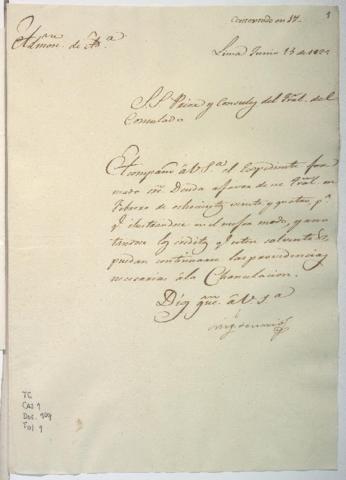 Contestado en 17.
1
Admon. de
Lima Junio 13 de
S.S. Prior y Consules del Tral. del
Consulado
Acompaño á V.S.a el Expediente for
mado Deuda afavor de ese Tral. en
Febrero de ochocientos veinte y quatro, pa
q. ilustrandose en el mejor modo, y ano
tandose los creditos q. esten solventes
puedan continuarse las providencias
necesarias á la Chancelacion.
Dios gue. á V.S.a
TC
CAJ 1
Doc. 909
Fol. 1